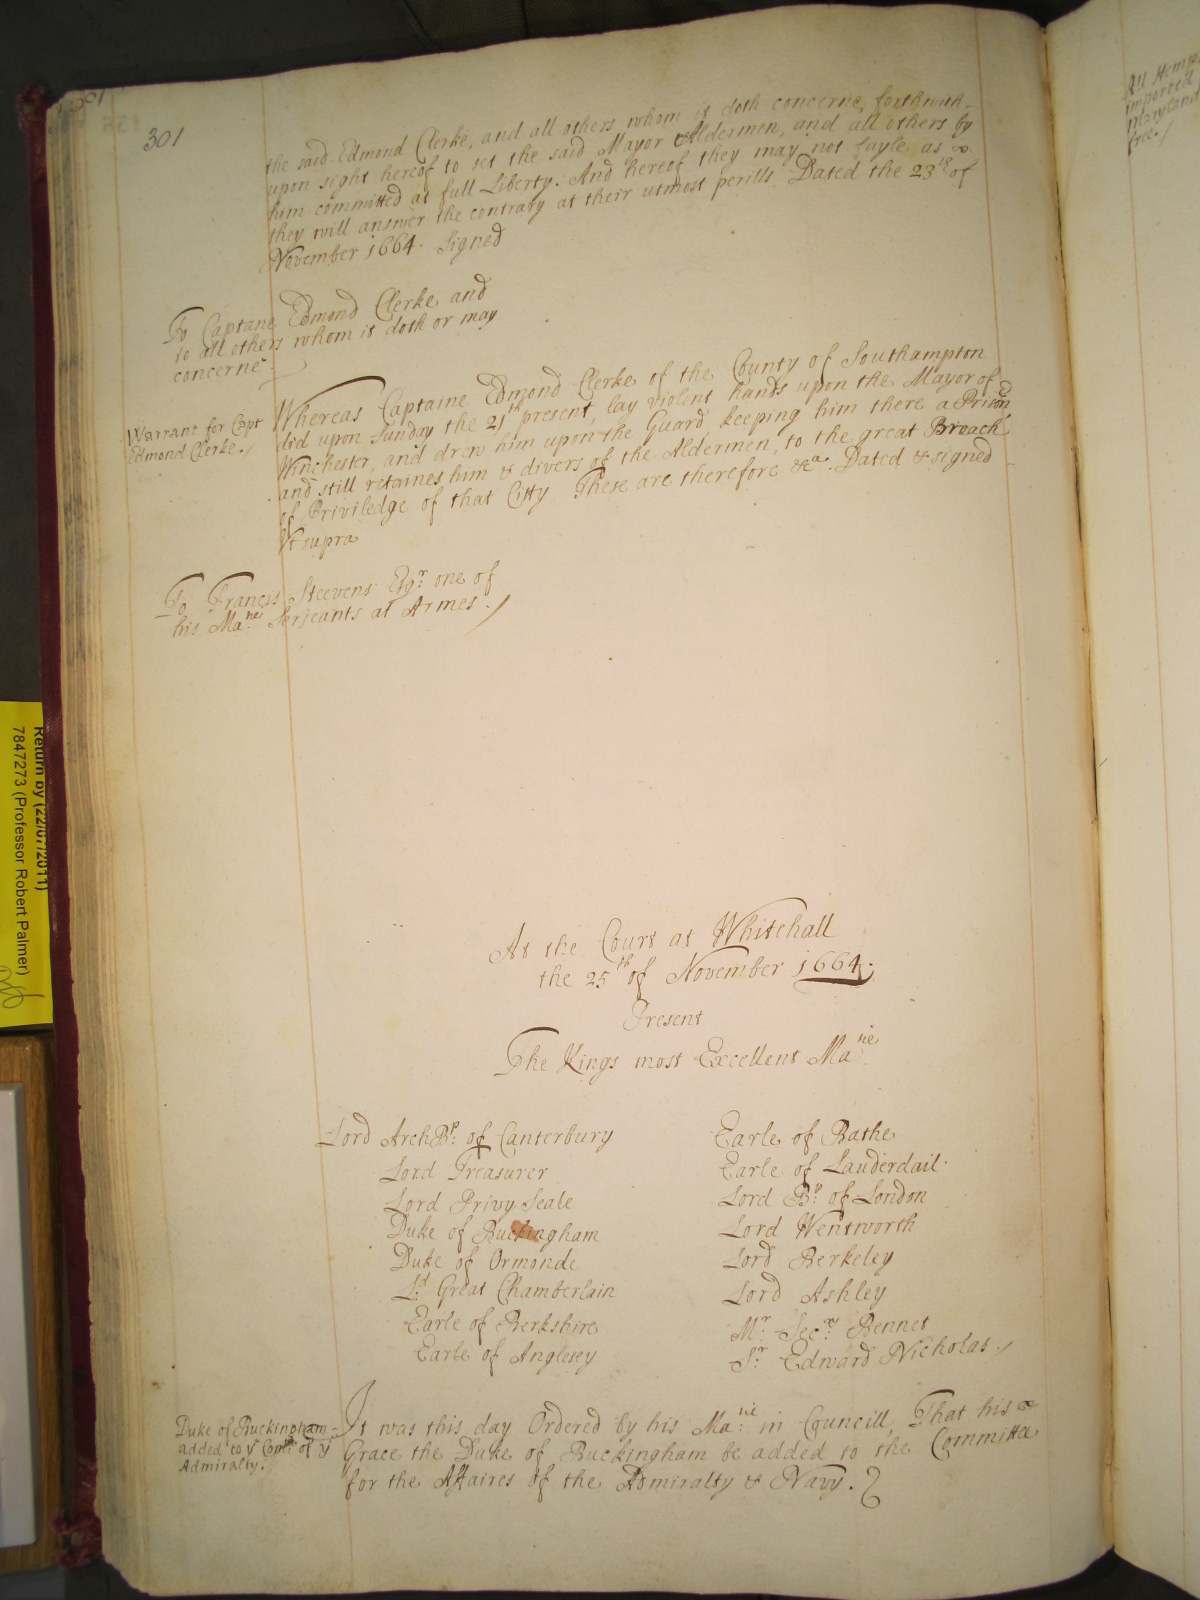 301
the said Edmond Clerke, and all others whom it doth concerne, forthwith
upon sight hereof to set the said Mayor & Aldermen, and all others by
him committed at full Liberty. And hereof they may not fayle, as
they will answer the contrary at their utmost perills. Dated the 23th of
November 1664. Signed
To Captane Edmond Clerke and
to all others whom it doth or may
concerne
Warrant for Capt
Edmond Clerke.
Whereas Captaine Edmond Clerke of the County of Southampton
did upon Sunday the 21th present, lay violent hands upon the Mayor of
Winchester, and drew him upon the Guard, keeping him there a Prison
and still retaines him & divers of the Aldermen, to the great Breach
of Priviledge of that Citty These are therefore &ca. Dated & signed
Vt supra
To Francis Steevens Esqr. one of
his Matie Serjeants at Armes.
At the Court at Whitehall
the 25th of November 1664.
Present
The Kings most Excellent Matie
Lord ArchBp: of Canterbury
Lord Treasurer
Lord Privy Seale
Duke of Buckingham
Duke of Ormonde
Ld Great Chamberlain
Earle of Berkshire
Earle of Anglesey
Earle of Bathe
Earle of Lauderdail
Lord Bp: of London
Lord Wentworth
Lord Berkeley
Lord Ashley
Mr. Secry Bennet
Sr. Edward Nicholas
Duke of Buckingham
added to ye Comtee of ye
Admiralty.
It was this day Ordered by his Matie in Councill, That his
Grace the Duke of Buckingham be added to the Committee
for the Affaires of the Admiralty & Navy.
All Hemp
imported
Maryland
free.
Return by (22/07/2011)
7847273 (Professor Robert Palmer)